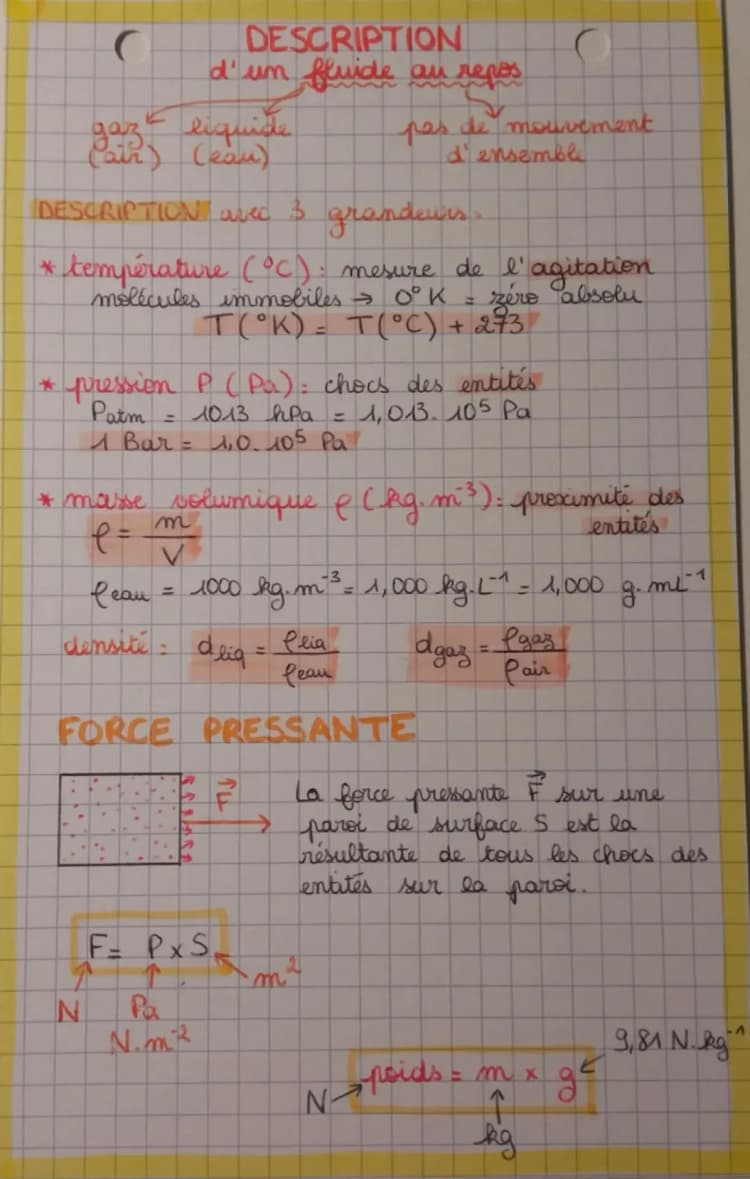 DESCRIPTION
d'un fluide au repos
gaz liquide pas de mouvement
(air) (eau) d'ensemble
DESCRIPTION avec 3 grandeurs.
* température (°C) : mesure de l'agitation
molécules immobiles → 0°K = zéro absolu
T(°K) = T(°C) + 273
* pression P (Pa) : chocs des entités
Patm = 1013 hPa = 1,013. 10⁵ Pa
1 Bar = 1,0. 10⁵ Pa
* masse volumique ρ (kg. m⁻³) : proximité des
entités
ρ = m/V
ρeau = 1000 kg. m⁻³ = 1,000 kg. L⁻¹ = 1,000 g. mL⁻¹
densité : dliq = ρliq/ρeau dgaz = ρgaz/ρair
FORCE PRESSANTE
F⃗ La force pressante F⃗ sur une
paroi de surface S est la
résultante de tous les chocs des
entités sur la paroi.
F = P x S
m²
N Pa
N. m⁻²
9,81 N. kg⁻¹
poids = m x g
N
kg